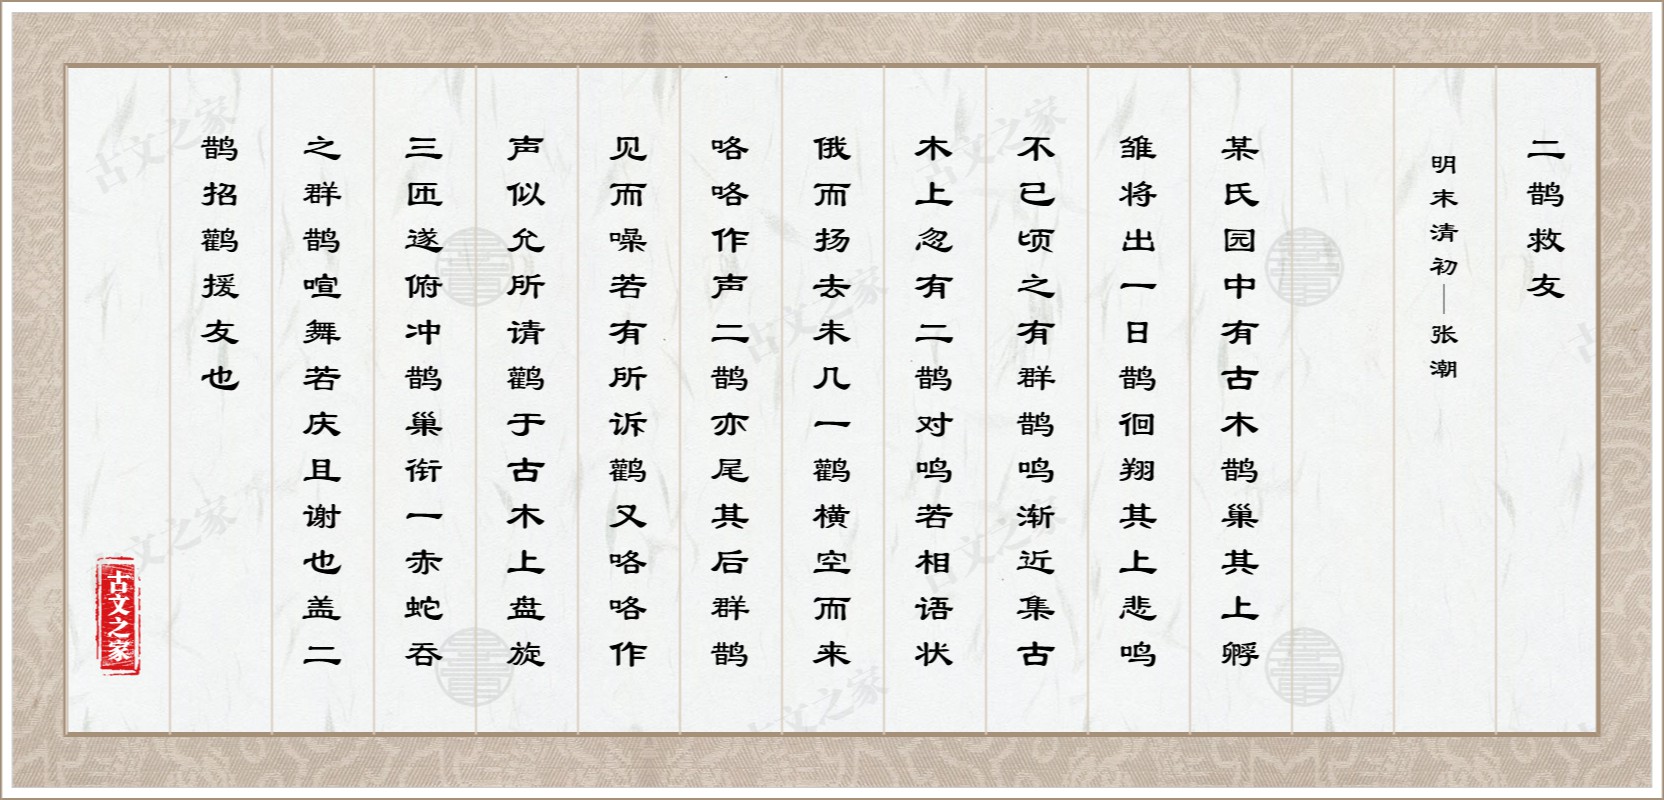 二鹊救友
明末清初—张潮
某氏园中有古木鹊巢其上孵
雏将出一日鹊徊翔其上悲鸣
不已顷之有群鹊鸣渐近集古
木上忽有二鹊对鸣若相语状
俄而扬去未几一鹳横空而来
咯咯作声二鹊亦尾其后群鹊
见而噪若有所诉鹳又咯咯作
声似允所请鹳于古木上盘旋
三匝遂俯冲鹊巢衔一赤蛇吞
之群鹊喧舞若庆且谢也盖二
鹊招鹳援友也
古文之家